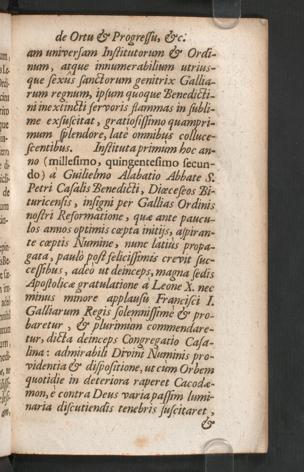 de Ortu & Progressu, &c.
am universam Institutorum & Ordi-
num, atque innumerabilium utrius-
que sexus sanctorum genitrix Gallia-
rum regnum, ipsum quoque Benedicti-
ni inextincti fervoris flammas in subli-
me exsuscitat, gratiosissimo quampri-
mum splendore, latè omnibus colluce-
scentibus. Instituta primum hoc an-
no (millesimo, quingentesimo secun-
do) à Guilielmo Alabatio Abbate S.
Petri Casalis Benedicti, Diœceseos Bi-
turicensis, insigni per Gallias Ordinis
nostri Reformatione, quæ ante paucu-
los annos optimis cœpta initijs, aspiran-
te cœptis Numine, nunc latiùs propa-
gata, paulò post felicissimis crevit suc-
cessibus, adeò ut deinceps, magna sedis
Apostolicæ gratulatione à Leone X. nec
minus minore applausu Francisci I.
Galliarum Regis solemnissimè & pro-
baretur, & plurimum commendare-
tur, dicta deinceps Congregatio Casa-
lina: admirabili Divini Numinis pro-
videntia & dispositione, ut cum Orbem
quotidie in deteriora raperet Cacodæ-
mon, è contra Deus varia passim lumi-
naria discutiendis tenebris suscitaret,
&